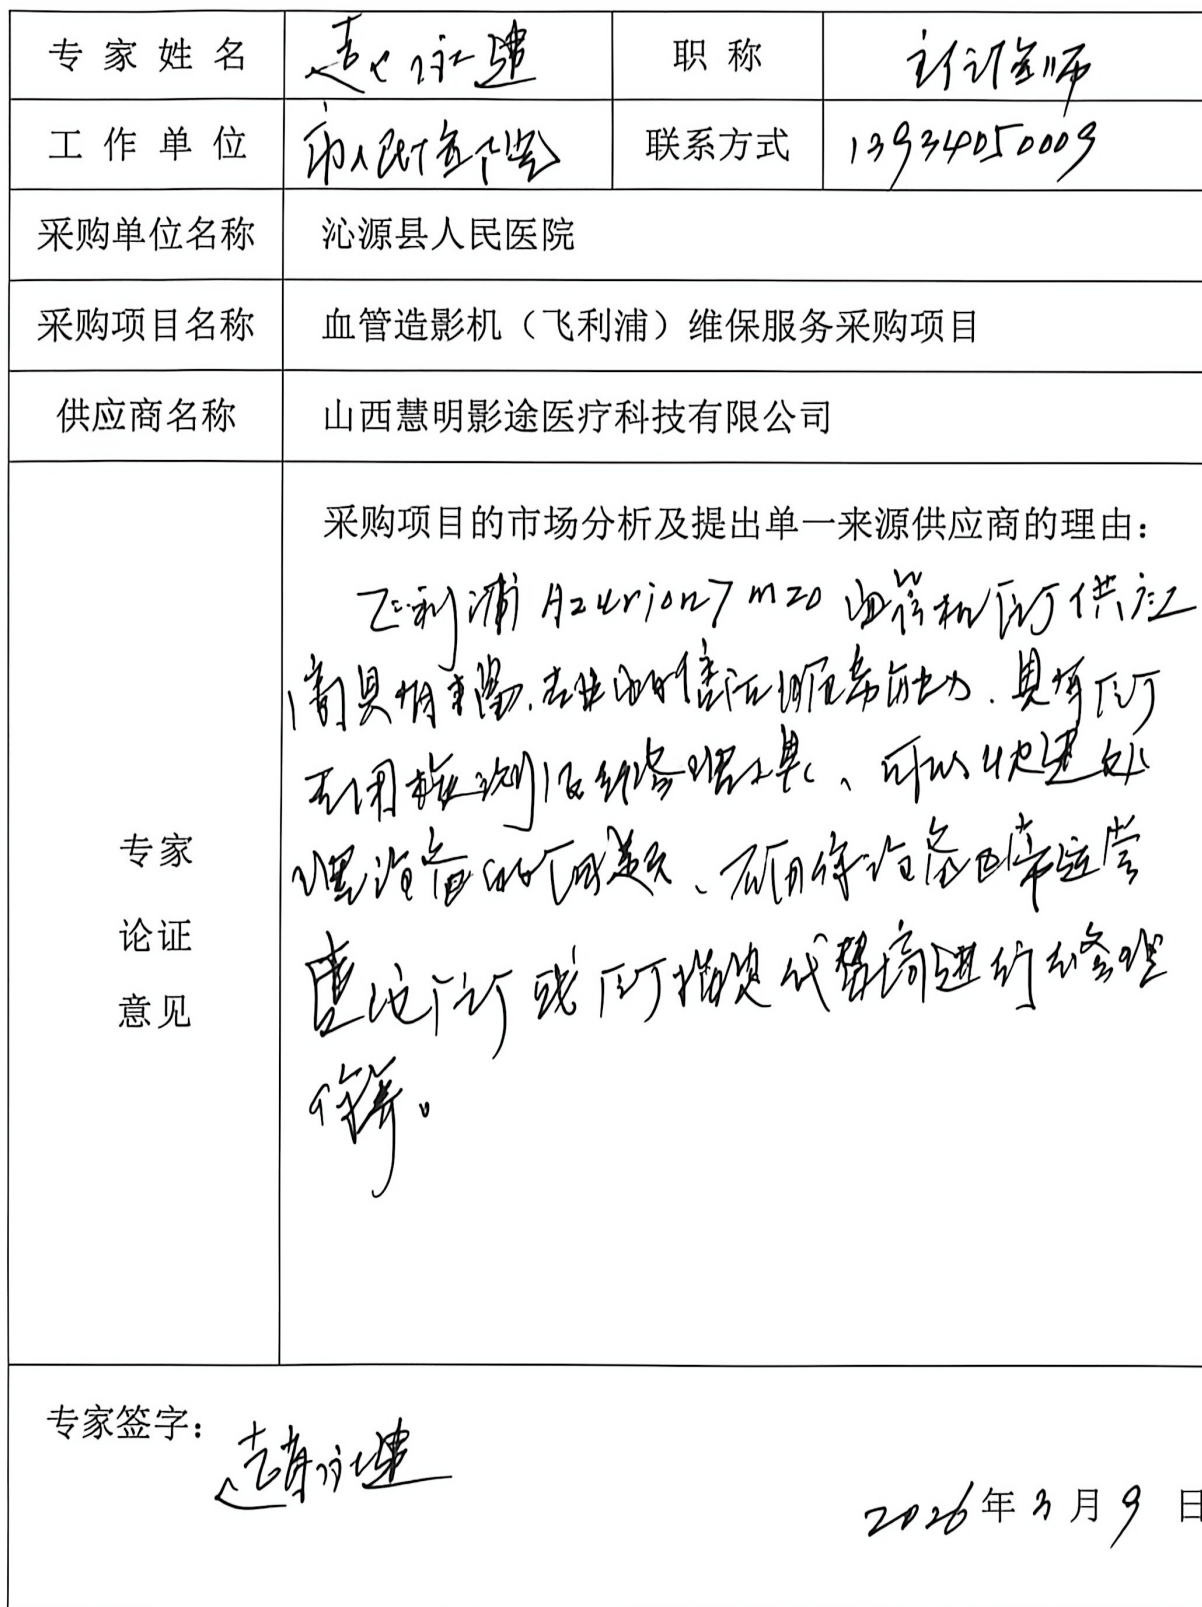 专家姓名 职称 主任医师
工作单位 市人民医院 联系方式 13934050009
采购单位名称 沁源县人民医院
采购项目名称 血管造影机（飞利浦）维保服务采购项目
供应商名称 山西慧明影途医疗科技有限公司
专家
论证
意见
采购项目的市场分析及提出单一来源供应商的理由：
飞利浦 Azurion7 m20 血管机原厂供应
商具有 的售后服务能力、具有原厂
专用检测及维修 、可以快速处
理设备的问题、 设备正常运营
原厂或原厂指定代替商进行
保养。
专家签字：
2026年3月9日